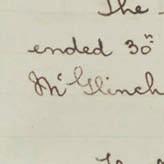 The
ended 30th
McGlinch